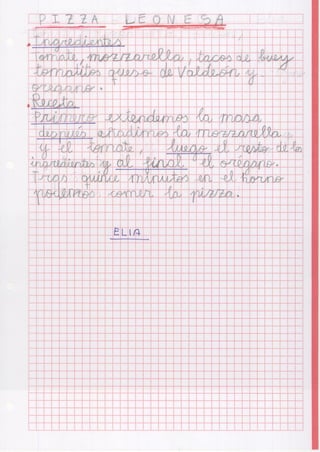 PIZZA LEONESA
Ingredientes
Tomate, mozzarella, tacos de buey
tomatitos queso de Valdeón y
orégano.
Receta
Primero extendemos la masa
después añadimos la mozzarella
y el tomate, luego el resto de los
ingredientes y al final el orégano.
Tras quince minutos en el horno
podemos comer la pizza.
ELIA